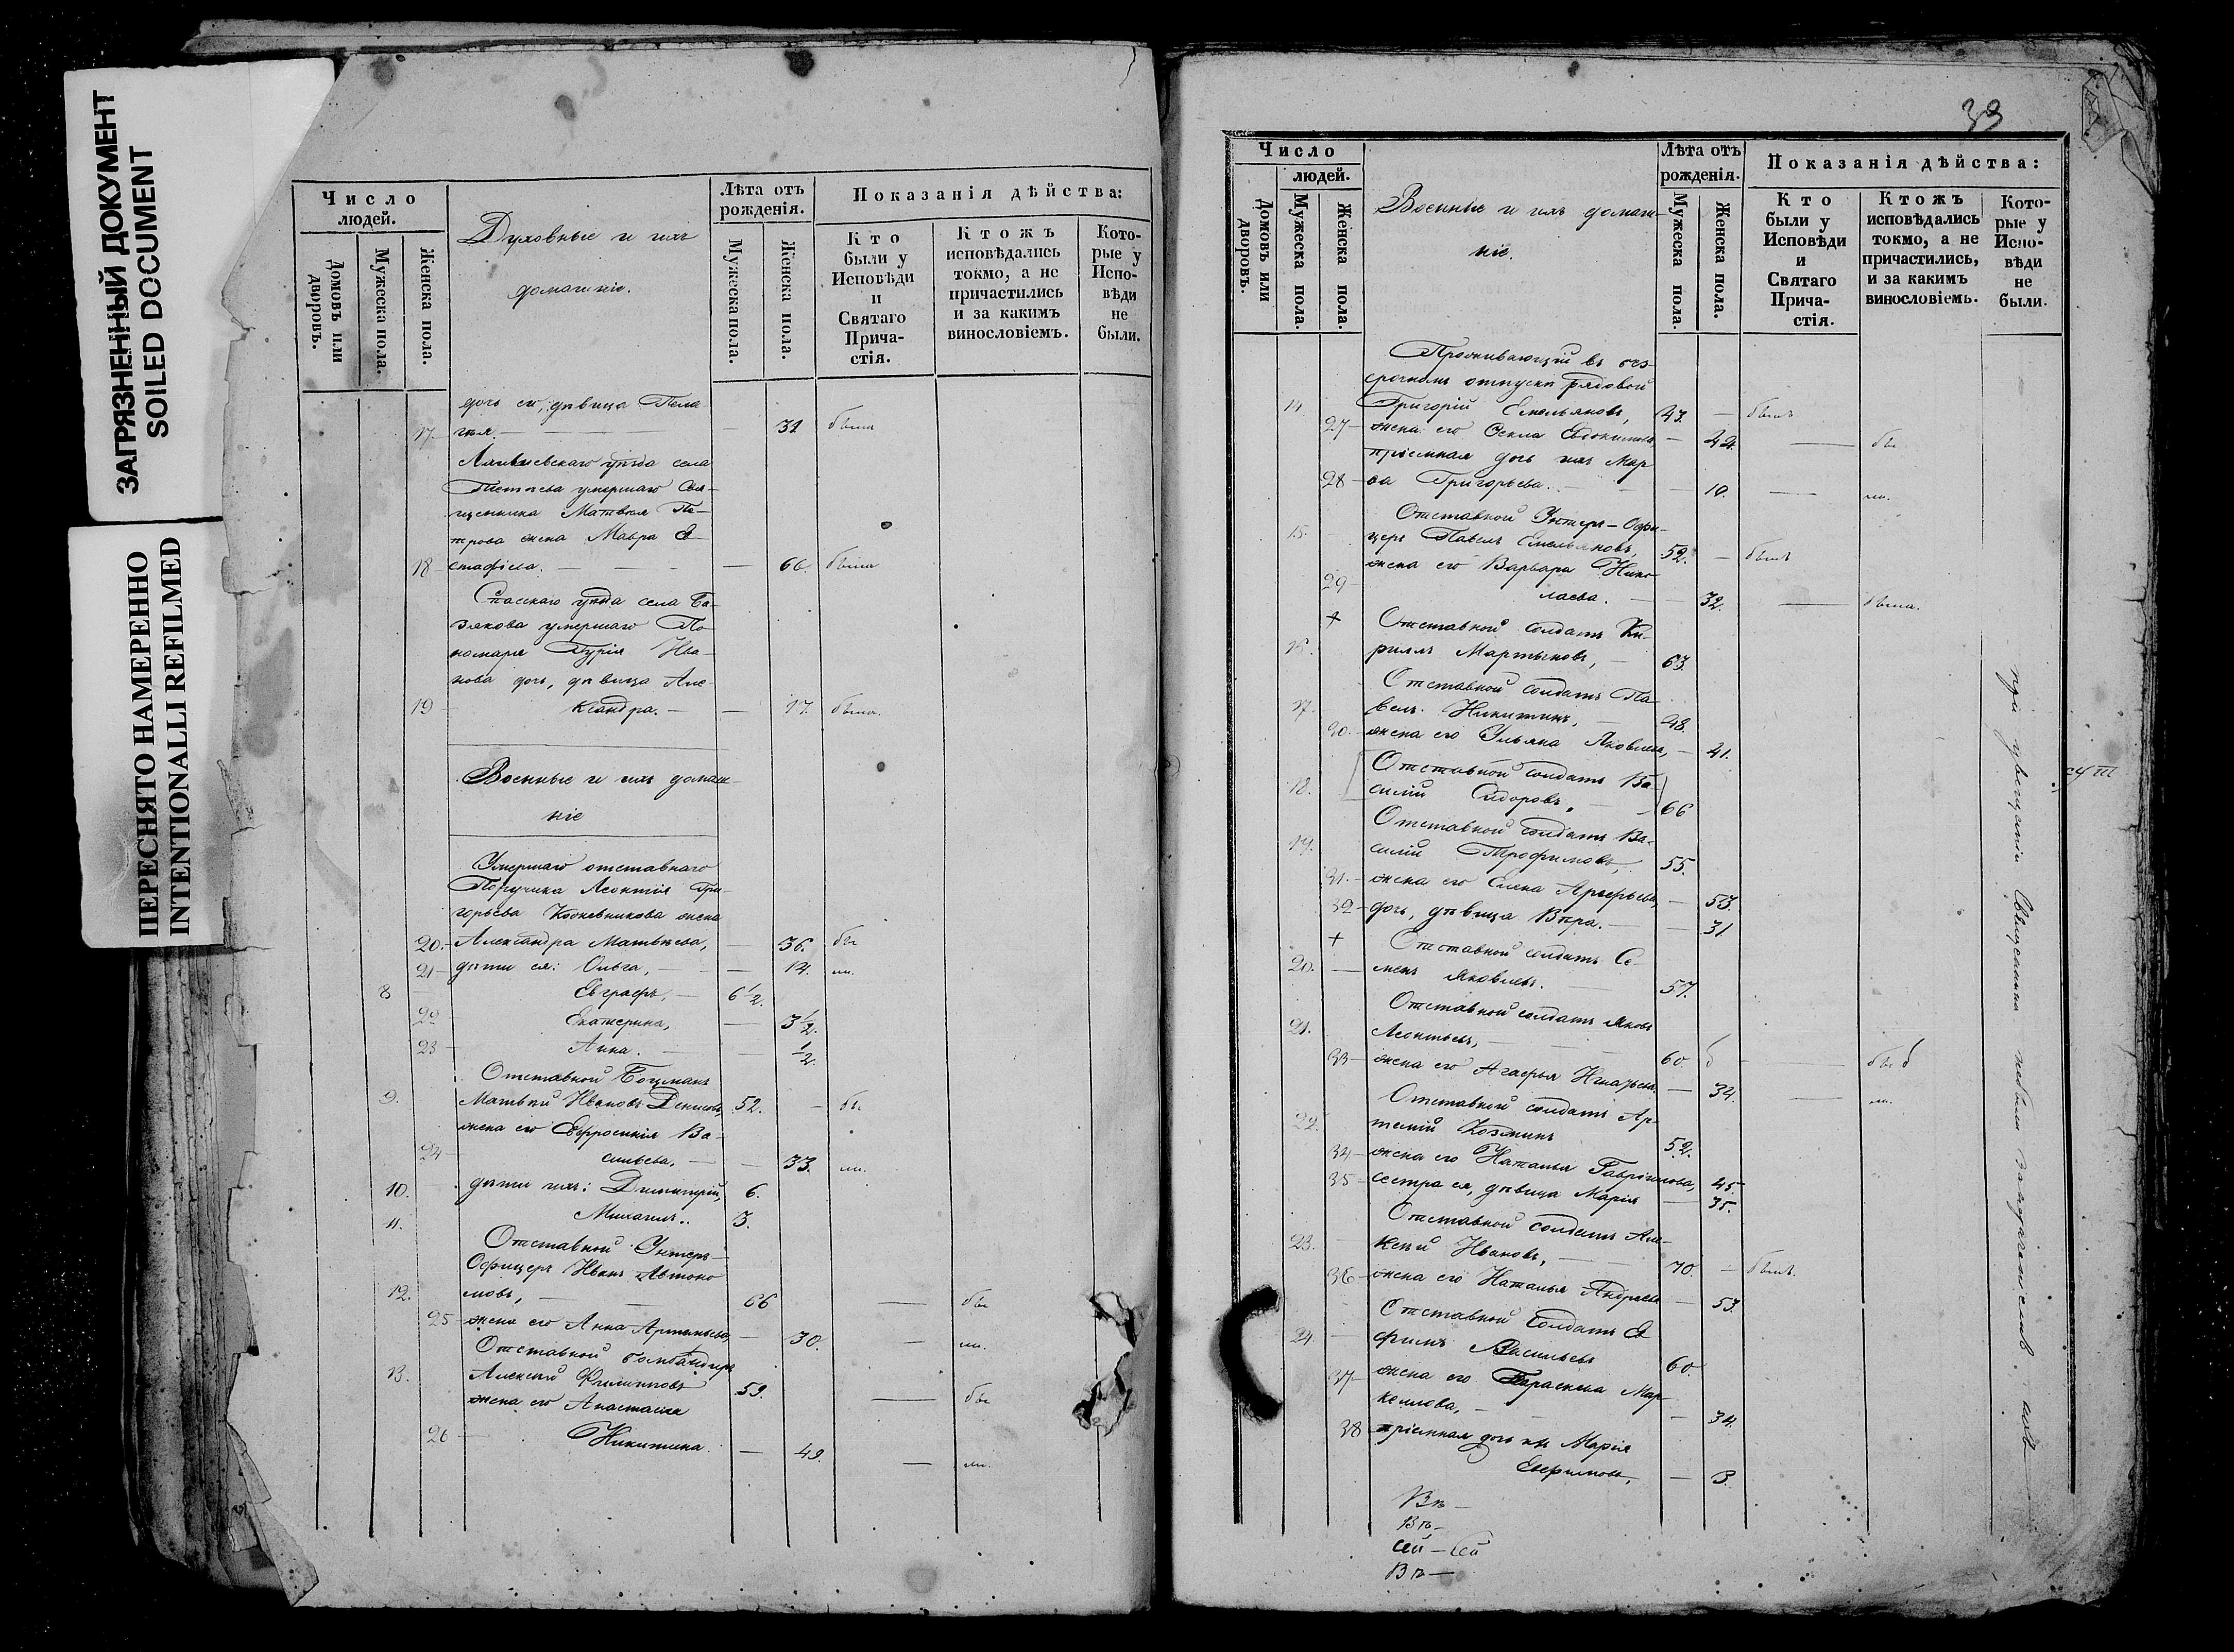 ЗАГРЯЗНЕННЫЙ ДОКУМЕНТ
SOILED DOCUMENT
ПЕРЕСНЯТО НАМЕРЕННО
INTENTIONALLI REFILMED
Число
людей.
Домовъ или дворовъ.
Мужеска пола.
Женска пола.
Духовные и ихъ
домашніе.
Лѣта отъ
рожденія.
Мужеска пола.
Женска пола.
Показанія дѣйства:
Кто
были у
Исповѣди
и
Святаго
Прича-
стія.
Ктожъ
исповѣдались
токмо, а не
причастились
и за какимъ
винословіемъ.
Кото-
рые у
Испо-
вѣди
не
были.
дочь ея, дѣвица Пела-
17 гія. — 31 была
уѣзда села
умершаго Свя-
щенника Матвея Пе-
трова жена Мавра Ев-
18 стафіева. — 66. была
Спасскаго уѣзда села
умершаго По-
номаря Гурія Ива-
нова дочь, дѣвица Але-
19 ксандра. — 17. была.
Военные и ихъ домаш-
ніе
Умершаго отставнаго
Поручика Леонтія Гри-
горьева Кожевникова жена
20. Александра Матвѣева, — 36. бы
21 дѣти ея: Ольга, — 14. ли.
8 Евграфъ, — 6 1/2.
22 Екатерина, — 3 1/2.
23 Анна. — 1/2
Отставной Боцманъ
9. Матвѣй Ивановъ Денисовъ, 52. — бы
жена его Евфросинія Ва-
24 сильева, — 33. ли.
10. дѣти ихъ: Димитрій, 6.
11. Михаилъ. 3.
Отставной Унтеръ-
Офицеръ Иванъ Автоно-
12. мовъ, — 66 — бы
25 жена его Анна Артемьева — 30. — ли.
Отставной бомбандиръ
13. Алексѣй Филипповъ 59. — бы
жена его Анастасія
26 Никитина. — 49. — ли.
39
Число
людей.
Домовъ или дворовъ.
Мужеска пола.
Женска пола.
Военные и ихъ домаш-
ніе.
Лѣта отъ
рожденія.
Мужеска пола.
Женска пола.
Показанія дѣйства:
Кто
были у
Исповѣди
и
Святаго
Прича-
стія.
Ктожъ
исповѣдались
токмо, а не
причастились,
и за какимъ
винословіемъ.
Кото-
рые у
Испо-
вѣди
не
были.
Проживающій въ без-
срочномъ отпуски рядовой
14. Григорій Емельяновъ, 43. — былъ
27 жена его Ѳекла Евдокимова, — 42. — бы
пріемная дочь ихъ Мар-
28 ѳа Григорьева. — 10. — ли.
Отставной Унтеръ-Офи-
15. церъ Павелъ Емельяновъ, 52. — былъ
жена его Варвара Нико-
29 лаева. — 32. — была.
+ Отставной солдатъ Ки-
16. риллъ Мартыновъ, — 63.
Отставной солдатъ Па-
17. велъ Никитинъ, — 48.
30. жена его Ульяна Яковлева, — 41.
Отставной солдатъ Ва-
18. силій Сидоровъ, — 66
Отставной солдатъ Ва-
19. силій Трофимовъ, 55.
31. жена его Елена Арефьева, — 53.
32 дочь, дѣвица Вѣра. — 31
+ Отставной солдатъ Се-
20. — менъ Яковлевъ. — 57.
Отставной солдатъ Яковъ
21. Леонтьевъ, — 60.
33 жена его Агафья Игнатьева, — 34. — ли.
Отставной солдатъ Ар-
22. темій Козминъ 52.
34 жена его Наталья Гаврилова, 45.
35 сестра ея, дѣвица Марія — 35.
Отставной солдатъ Але-
23. ксѣй Ивановъ, — 70. — былъ.
36 жена его Наталья Андреева — 53.
Отставной Солдатъ Е-
24. фимъ Васильевъ 60.
37 жена его Параскева Мар-
келлова, — 34.
38 пріемная дочь ихъ Марія
Ефимова, — 3.
Вѣ —
Вѣ —
сей — сей
Вѣ —